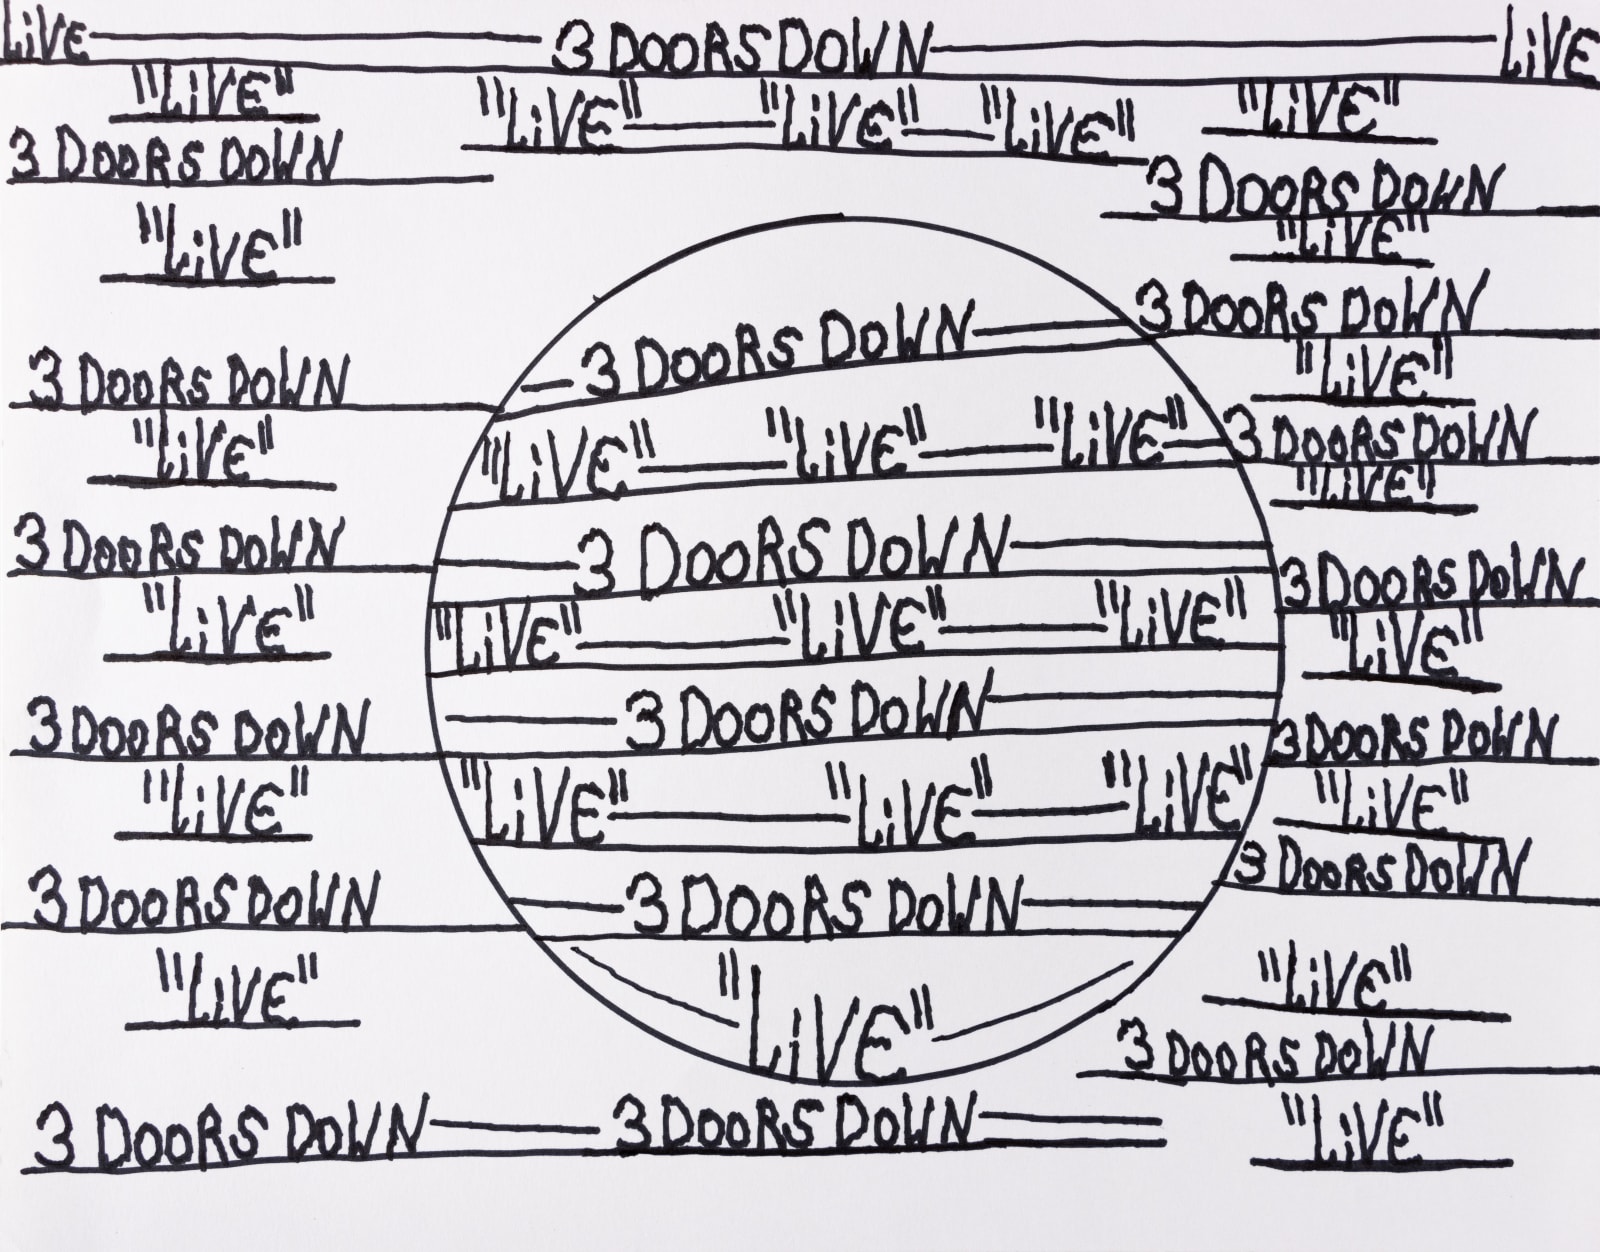 LiVE 3 DOORS DOWN LiVE
"LiVE" "LiVE" "LiVE" "LiVE" "LiVE"
3 DOORS DOWN 3 DOORS DOWN
"LiVE" "LiVE"
3 DOORS DOWN 3 DOORS DOWN
3 DOORS DOWN "LiVE"
"LiVE" "LiVE" "LiVE" "LiVE" 3 DOORS DOWN
"LiVE"
3 DOORS DOWN 3 DOORS DOWN 3 DOORS DOWN
"LiVE" "LiVE" "LiVE" "LiVE" "LiVE"
3 DOORS DOWN 3 DOORS DOWN 3 DOORS DOWN
"LiVE" "LiVE" "LiVE" "LiVE" "LiVE"
3 DOORS DOWN 3 DOORS DOWN 3 DOORS DOWN
"LiVE" "LiVE" "LiVE"
3 DOORS DOWN
3 DOORS DOWN 3 DOORS DOWN "LiVE"